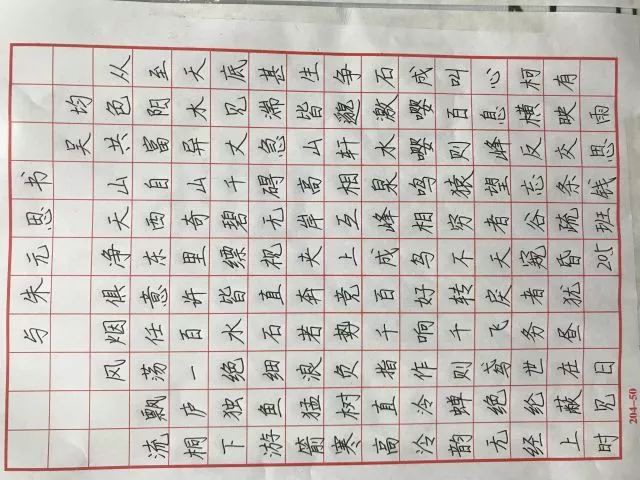 与朱元思书
吴均
风烟俱净天山共色从
流飘荡任意东西自富阳至
桐庐一百许里奇山异水天
下独绝水皆缥碧千丈见底
游鱼细石直视无碍急湍甚
箭猛浪若奔夹岸高山皆生
寒树负势竞上互相轩邈争
高直指千百成峰泉水激石
泠泠作响好鸟相鸣嘤嘤成
韵蝉则千转不穷猿则百叫
无绝鸢飞戾天者望峰息心
经纶世务者窥谷忘反横柯
上蔽在昼犹昏疏条交映有
时见日 205班钱思雨
204-50